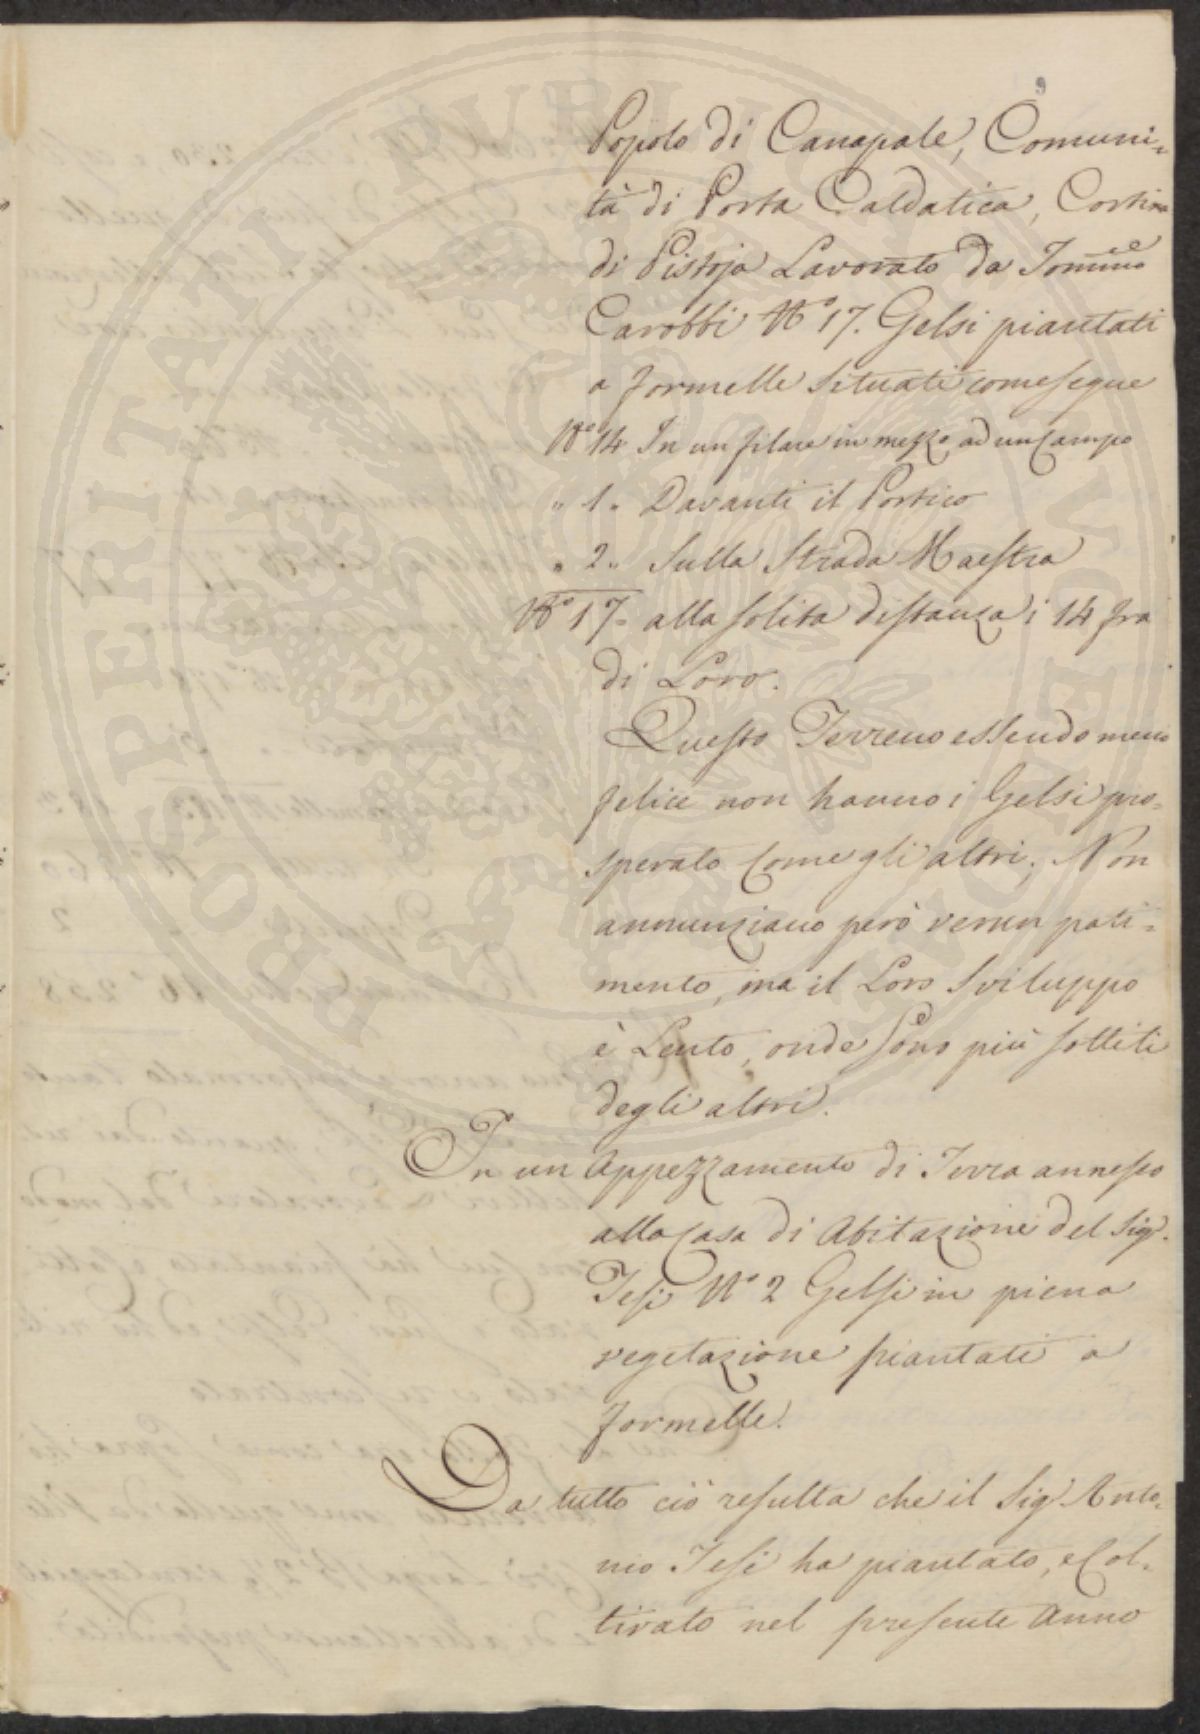 9
Popolo di Canapale, Comuni-
tà di Porta Caldatica, Cortina
di Pistoja Lavorato da Tommo
Carobbi No 17. Gelsi piantati
a formelle situati come segue
No 14 In un filare in mezzo ad un Campo
" 1 " Davanti il Portico
" 2 " Sulla Strada Maestra
No 17 - alla solita distanza i 14 fra
di Loro.
Questo Terreno essendo meno
felice non hanno i Gelsi pro-
sperato Come gli altri; Non
annunziano però verun pati-
mento, ma il Loro Sviluppo
è Lento, onde Sono più sottili
degli altri.
In un Appezzamento di Terra annesso
alla Casa di Abitazione del Sigr.
Tesi No 2 Gelsi in piena
vegetazione piantati a
formelle.
Da tutto ciò resulta che il Sigr Anto-
nio Tesi ha piantato, e Col-
tivato nel presente Anno
PROSPERITATI PUBLICAE